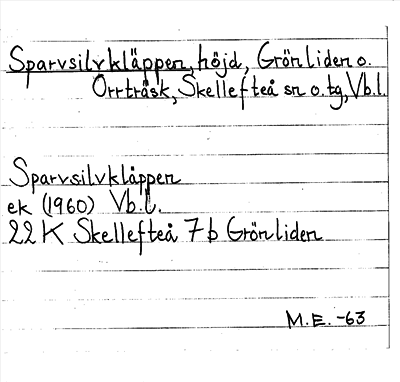 Sparvsilvkläppen, höjd, Grönliden o.
Orrträsk, Skellefteå sn o. tg, Vb.l.
Sparvsilvkläppen
ek (1960) Vb.l.
22 K Skellefteå 7 b Grönliden
M.E. -63